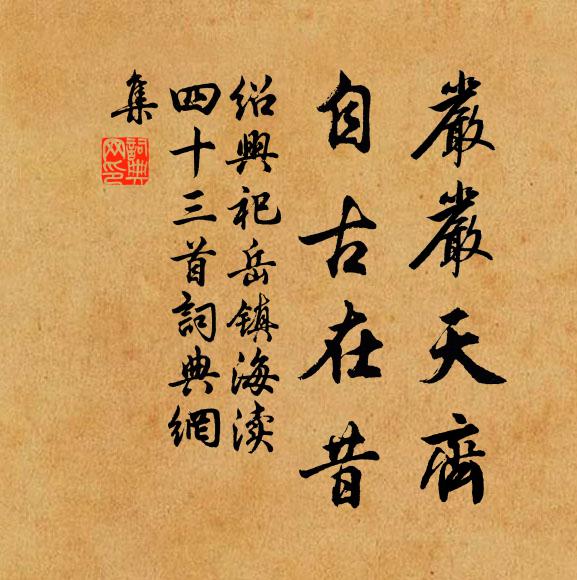 嚴嚴天齊
自古在昔
紹興祀岳鎮海瀆
四十三首詞典網
集
詞典
网印